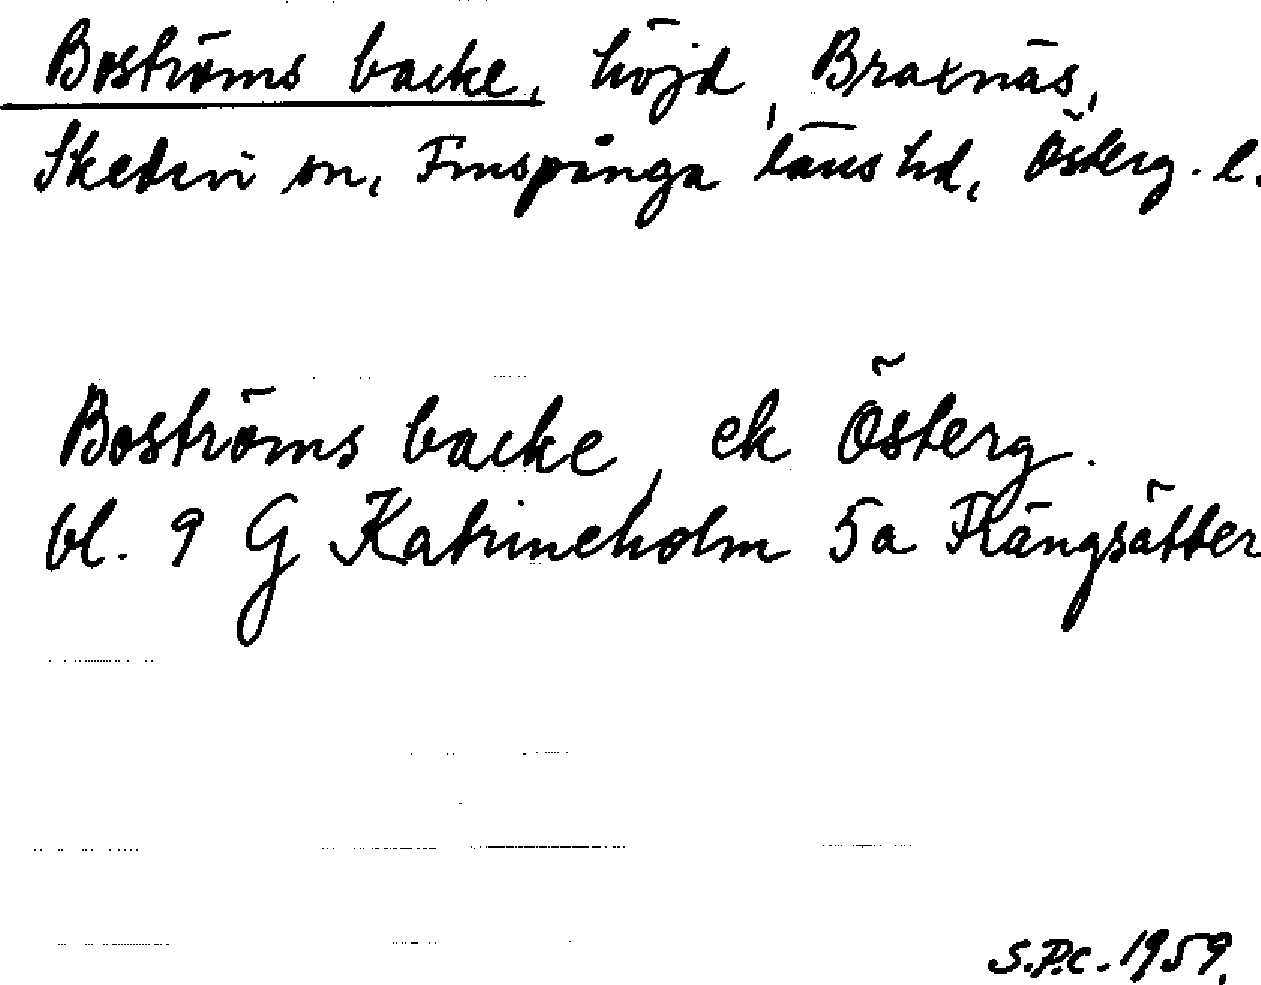 Boströms backe, höjd, Braxnäs,
Skedevi sn, Finspånga läns hd, Österg. l.
Boströms backe, ek Österg.
bl. 9 G Katrineholm 5a Flängsätter
S.P.C. 1959.